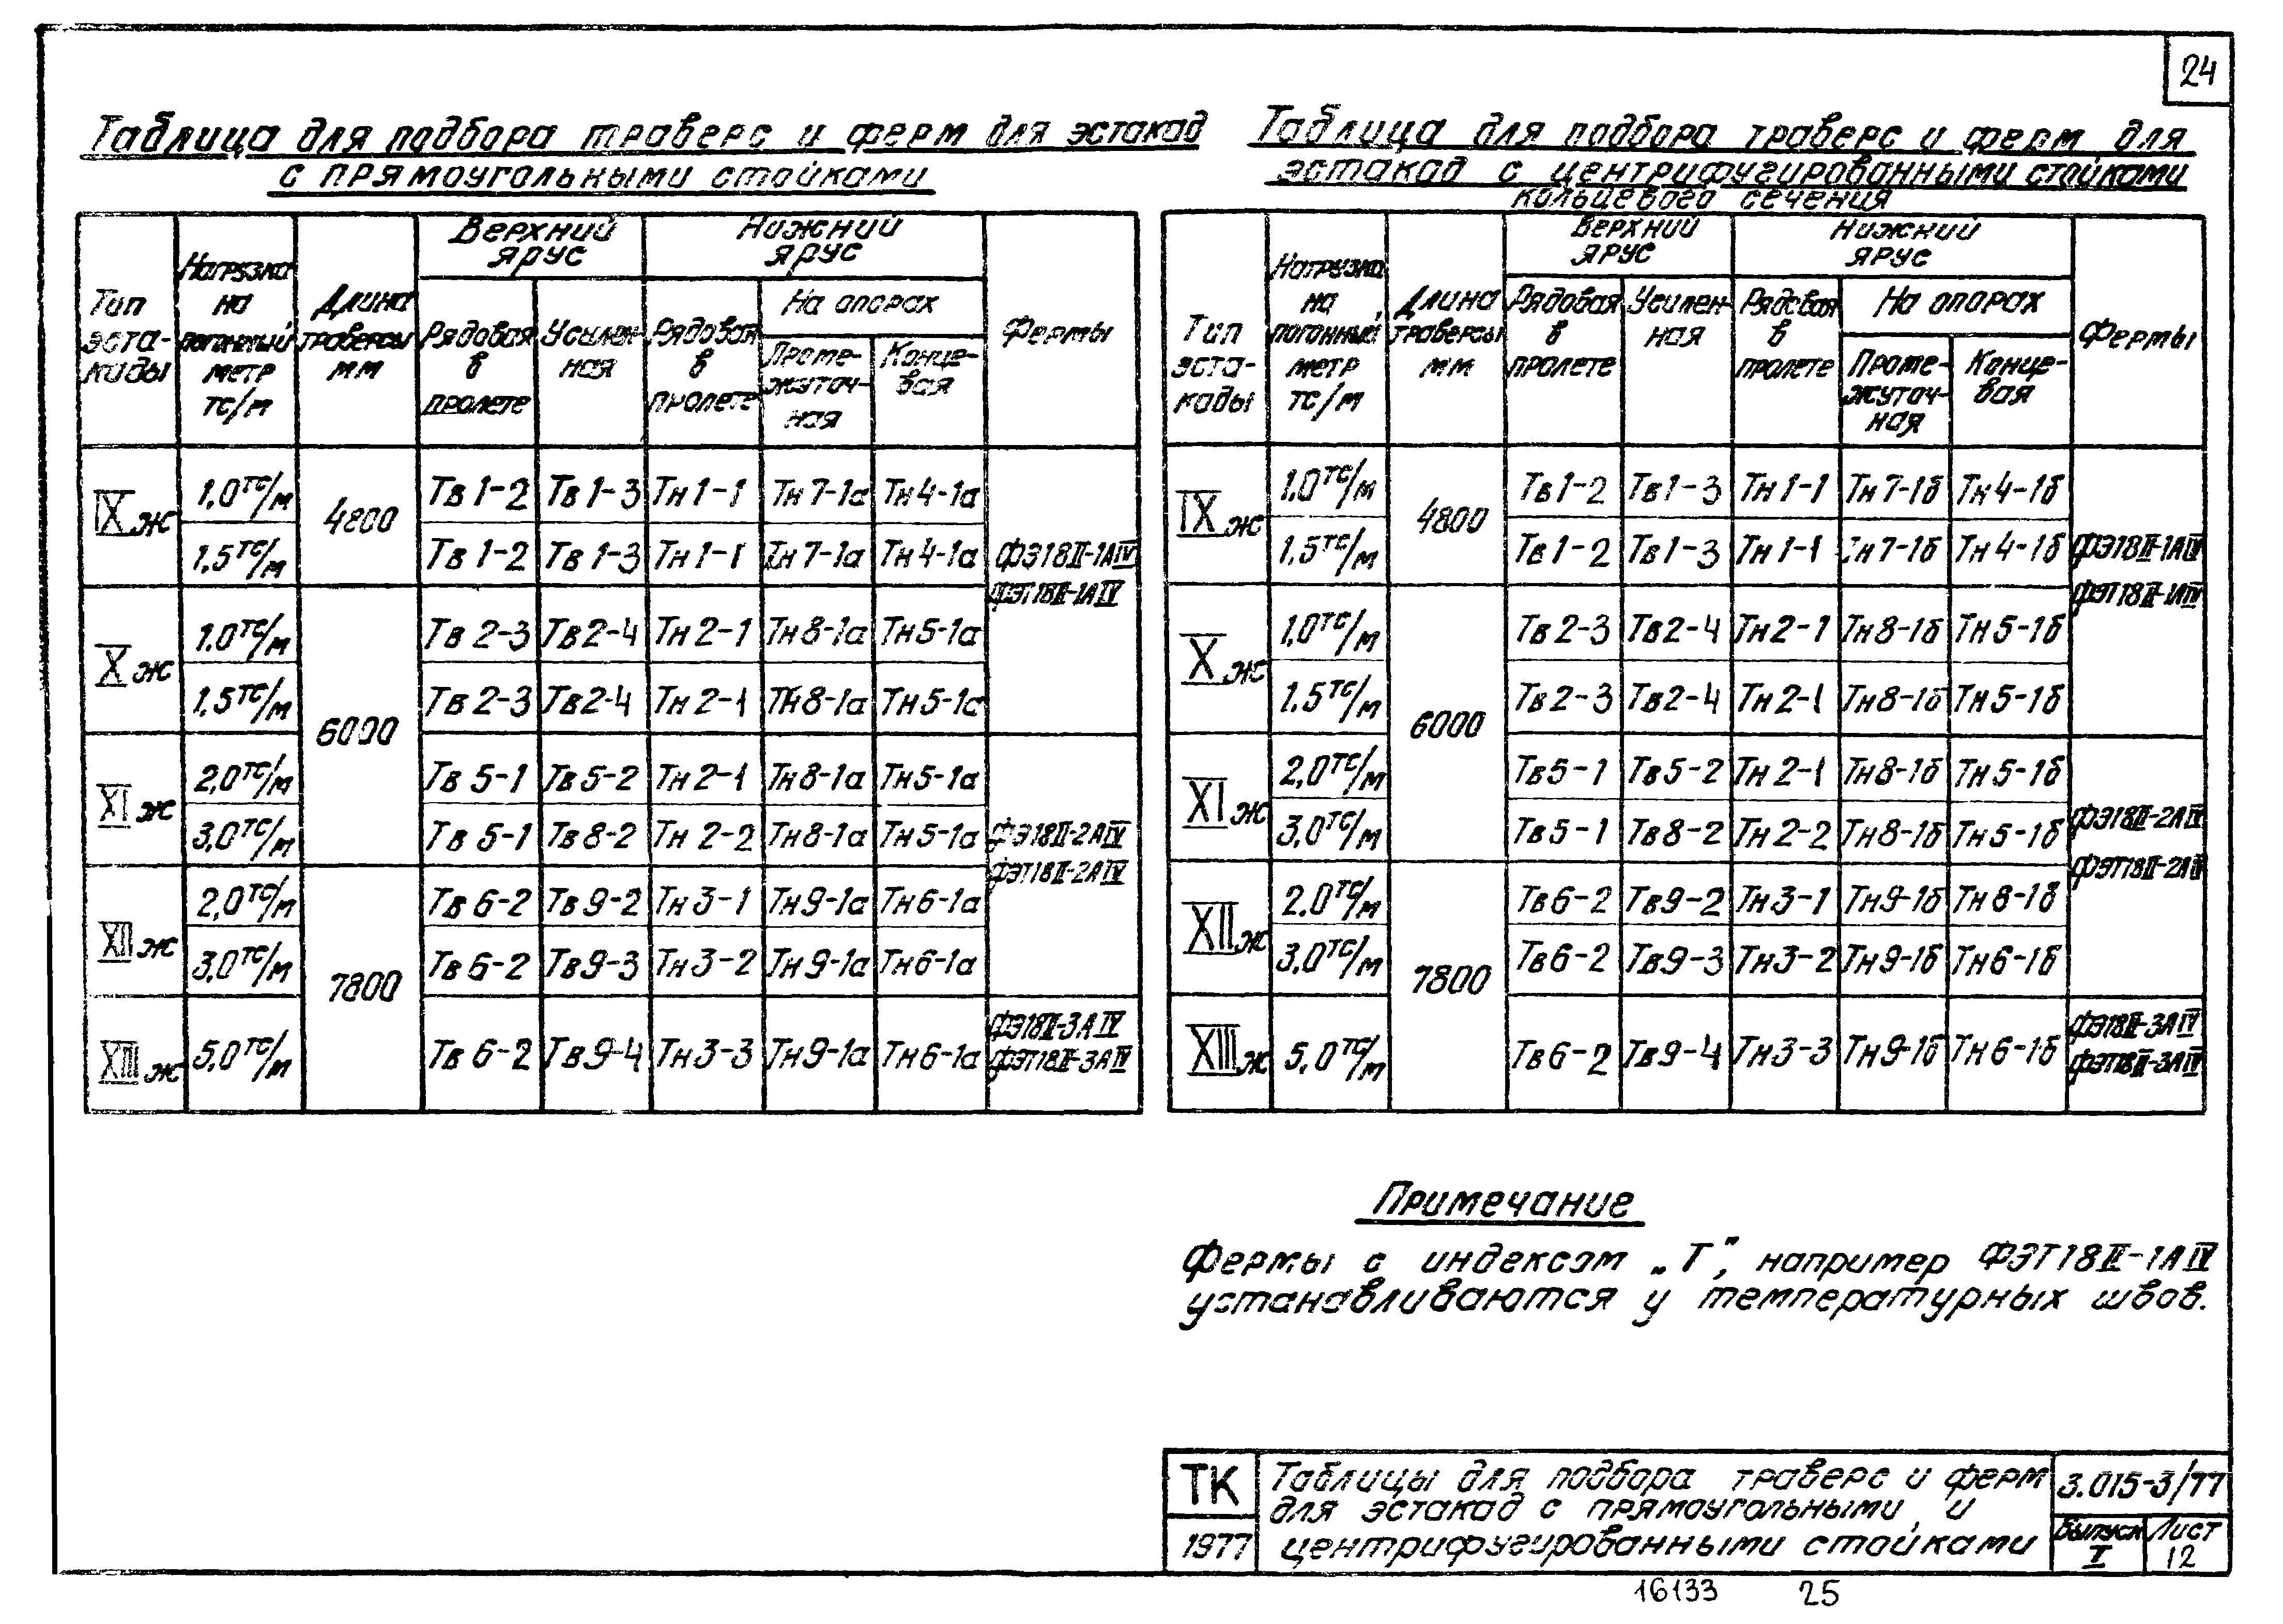 24
Таблица для подбора траверс и ферм для эстакад
с прямоугольными стойками
Тип эста-кады | Нагрузка на погонный метр тс/м | Длина траверсы мм | Верхний ярус | Нижний ярус | Фермы
Рядовая в пролете | Усилен-ная | Рядовая в пролете | На опорах
Проме-жуточ-ная | Конце-вая
IXж | 1,0 тс/м | 4800 | Тв 1-2 | Тв 1-3 | Тн 1-1 | Тн 7-1а | Тн 4-1а | ФЭ18II-1АIV ФЭТ18II-1АIV
1,5 тс/м | Тв 1-2 | Тв 1-3 | Тн 1-1 | Тн 7-1а | Тн 4-1а
Xж | 1,0 тс/м | 6000 | Тв 2-3 | Тв 2-4 | Тн 2-1 | Тн 8-1а | Тн 5-1а
1,5 тс/м | Тв 2-3 | Тв 2-4 | Тн 2-1 | Тн 8-1а | Тн 5-1а
XIж | 2,0 тс/м | Тв 5-1 | Тв 5-2 | Тн 2-1 | Тн 8-1а | Тн 5-1а | ФЭ18II-2АIV ФЭТ18II-2АIV
3,0 тс/м | Тв 5-1 | Тв 8-2 | Тн 2-2 | Тн 8-1а | Тн 5-1а
XIIж | 2,0 тс/м | 7800 | Тв 6-2 | Тв 9-2 | Тн 3-1 | Тн 9-1а | Тн 6-1а
3,0 тс/м | Тв 6-2 | Тв 9-3 | Тн 3-2 | Тн 9-1а | Тн 6-1а
XIIIж | 5,0 тс/м | Тв 6-2 | Тв 9-4 | Тн 3-3 | Тн 9-1а | Тн 6-1а | ФЭ18II-3АIV ФЭТ18II-3АIV
Таблица для подбора траверс и ферм для
эстакад с центрифугированными стойками
кольцевого сечения
Тип эста-кады | Нагрузка на погонный метр тс/м | Длина траверсы мм | Верхний ярус | Нижний ярус | Фермы
Рядовая в пролете | Усилен-ная | Рядовая в пролете | На опорах
Проме-жуточ-ная | Конце-вая
IXж | 1,0 тс/м | 4800 | Тв 1-2 | Тв 1-3 | Тн 1-1 | Тн 7-1б | Тн 4-1б | ФЭ18II-1АIV ФЭТ18II-1АIV
1,5 тс/м | Тв 1-2 | Тв 1-3 | Тн 1-1 | Тн 7-1б | Тн 4-1б
Xж | 1,0 тс/м | 6000 | Тв 2-3 | Тв 2-4 | Тн 2-1 | Тн 8-1б | Тн 5-1б
1,5 тс/м | Тв 2-3 | Тв 2-4 | Тн 2-1 | Тн 8-1б | Тн 5-1б
XIж | 2,0 тс/м | Тв 5-1 | Тв 5-2 | Тн 2-1 | Тн 8-1б | Тн 5-1б | ФЭ18II-2АIV ФЭТ18II-2АIV
3,0 тс/м | Тв 5-1 | Тв 8-2 | Тн 2-2 | Тн 8-1б | Тн 5-1б
XIIж | 2.0 тс/м | 7800 | Тв 6-2 | Тв 9-2 | Тн 3-1 | Тн 9-1б | Тн 8-1б
3,0 тс/м | Тв 6-2 | Тв 9-3 | Тн 3-2 | Тн 9-1б | Тн 6-1б
XIIIж | 5,0 тс/м | Тв 6-2 | Тв 9-4 | Тн 3-3 | Тн 9-1б | Тн 6-1б | ФЭ18II-3АIV ФЭТ18II-3АIV
Примечание
Фермы с индексом „Т”, например ФЭТ18II-1АIV
устанавливаются у температурных швов.
ТК
1977
Таблицы для подбора траверс и ферм
для эстакад с прямоугольными и
центрифугированными стойками
3.015-3/77
Выпуск I
Лист 12
16133 25